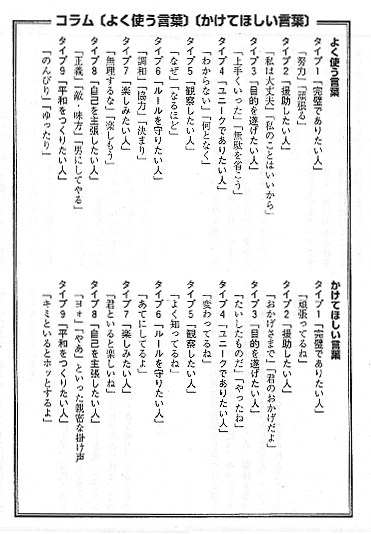 コラム〔よく使う言葉〕〔かけてほしい言葉〕
よく使う言葉
タイプ1「完璧でありたい人」
「努力」「頑張る」
タイプ2「援助したい人」
「私は大丈夫」「私のことはいいから」
タイプ3「目的を遂げたい人」
「上手くいった」「無駄を省こう」
タイプ4「ユニークでありたい人」
「わからない」「何となく」
タイプ5「観察したい人」
「なぜ」「なるほど」
タイプ6「ルールを守りたい人」
「調和」「協力」「決まり」
タイプ7「楽しみたい人」
「無理するな」「楽しもう」
タイプ8「自己を主張したい人」
「正義」「敵・味方」「男にしてやる」
タイプ9「平和をつくりたい人」
「のんびり」「ゆったり」
かけてほしい言葉
タイプ1「完璧でありたい人」
「頑張ってるね」
タイプ2「援助したい人」
「おかげさまで」「君のおかげだよ」
タイプ3「目的を遂げたい人」
「たいしたものだ」「やったね」
タイプ4「ユニークでありたい人」
「変わってるね」
タイプ5「観察したい人」
「よく知ってるね」
タイプ6「ルールを守りたい人」
「あてにしてるよ」
タイプ7「楽しみたい人」
「君といると楽しいね」
タイプ8「自己を主張したい人」
「ヨォ」「やあ」といった親密な掛け声
タイプ9「平和をつくりたい人」
「キミといるとホッとするよ」